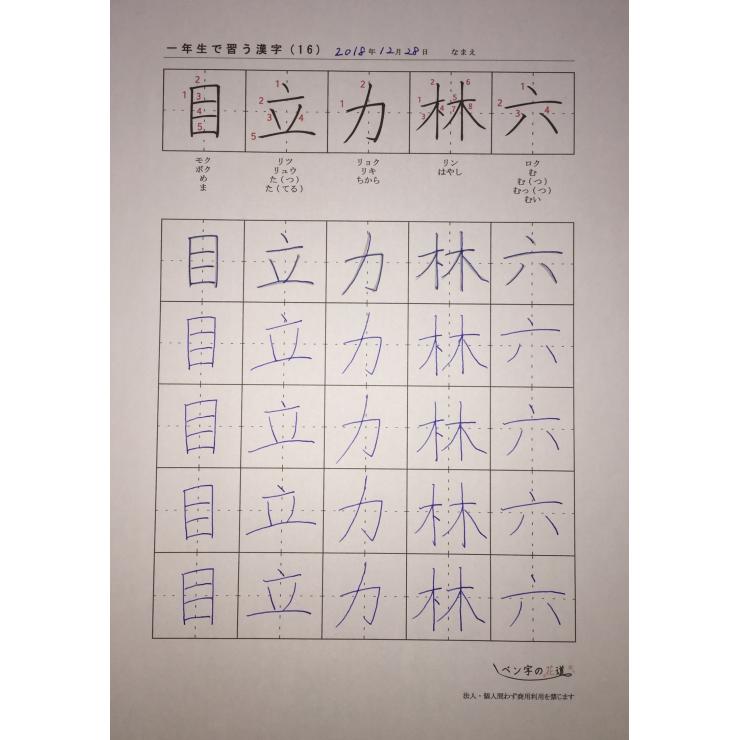 一年生で習う漢字(16) 2018年12月28日 なまえ
目 立 力 林 六
モク リツ リョク リン ロク
ボク リュウ リキ はやし む
め た(つ) ちから む(つ)
ま た(てる) むっ(つ)
むい
目 立 力 林 六
目 立 力 林 六
目 立 力 林 六
目 立 力 林 六
目 立 力 林 六
ペン字の花道
法人・個人問わず商用利用を禁じます